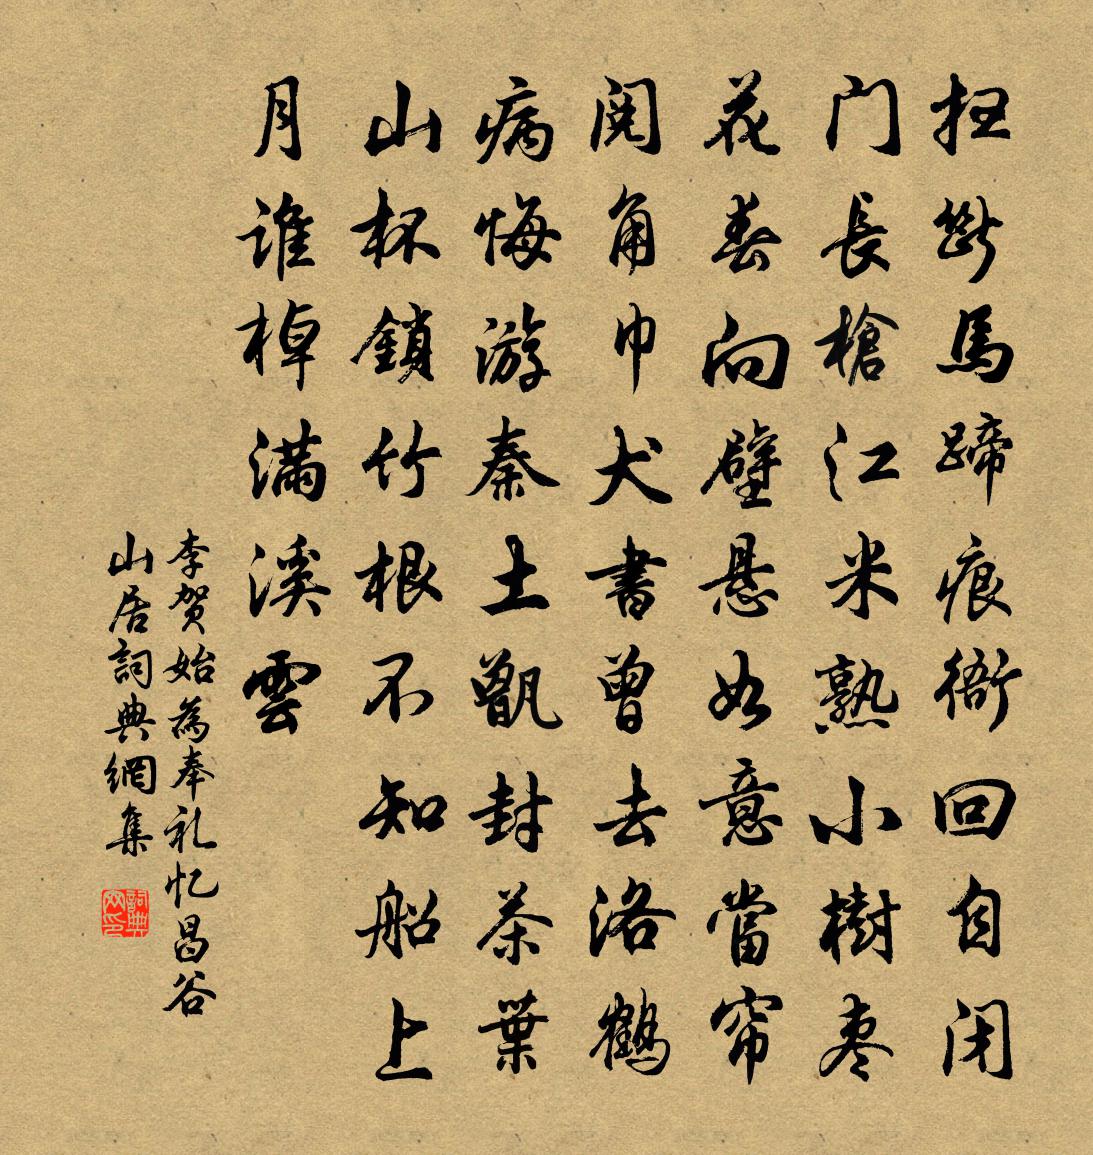 扫斷馬蹄痕衙回自闭
门長槍江米熟小樹枣
花春向壁悬如意當帘
阅角巾犬書曾去洛鹤
病悔游秦土甑封茶葉
山杯鎖竹根不知船上
月谁棹满溪雲
李贺始為奉礼忆昌谷
山居詞典網集
詞典网印